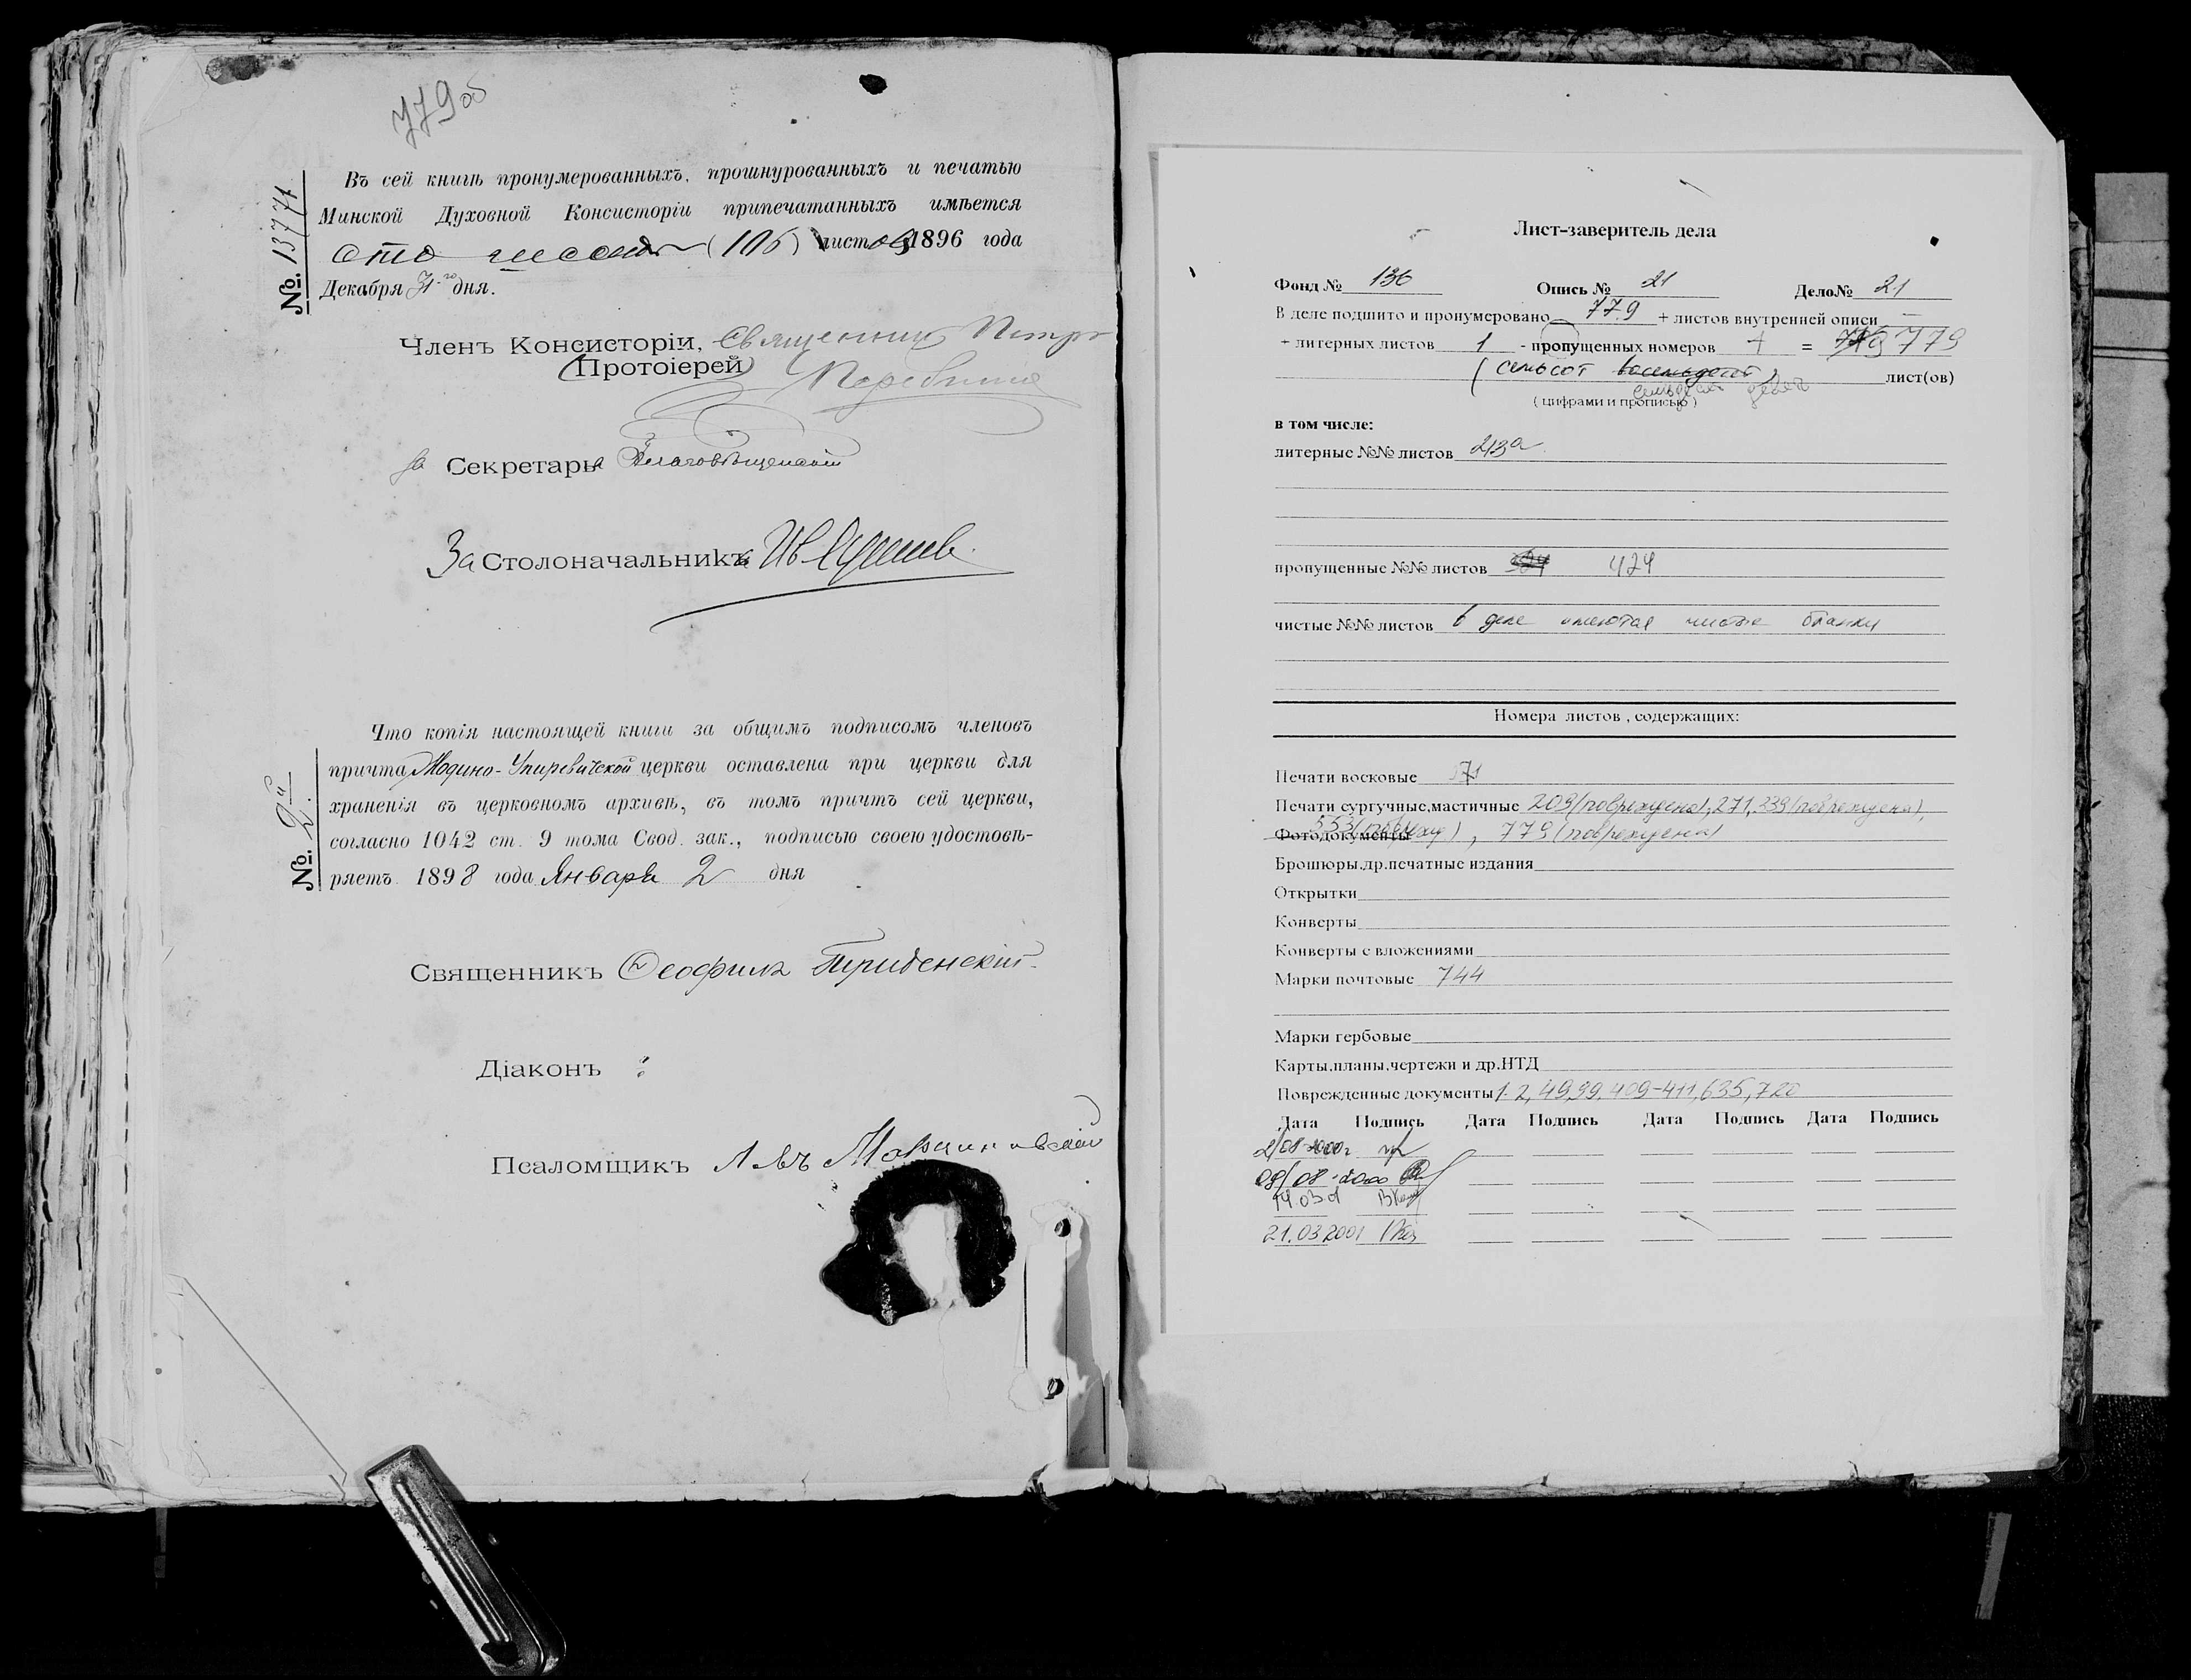 779об
№. 13771
Въ сей книгѣ пронумерованныхъ, прошнурованныхъ и печатью
Минской Духовной Консисторіи припечатанныхъ имѣется
сто шесть (106) листовъ 1896 года
Декабря 31го дня.
Членъ Консисторіи, Священникъ Петръ
(Протоіерей)
За Секретаря Благовѣщенскій
За Столоначальника Ив
№. 2й
Что копія настоящей книги за общимъ подписомъ членовъ
причта Жодино-Упиревичской церкви оставлена при церкви для
храненія въ церковномъ архивѣ, въ томъ причтъ сей церкви,
согласно 1042 ст. 9 тома Свод. зак., подписью своею удостовѣ-
ряетъ 1898 года Января 2 дня
Священникъ Ѳеофилъ
Діаконъ :
Псаломщикъ Левъ Марциновскій
Лист-заверитель дела
Фонд № 136 Опись № 21 Дело№ 21
В деле подшито и пронумеровано 779 + листов внутренней описи —
+ литерных листов 1 - пропущенных номеров 1 = 779
(семьсот восемьдесят) лист(ов)
семьдесят девять
( цифрами и прописью )
в том числе:
литерные №№ листов 213а
пропущенные №№ листов 424
чистые №№ листов в деле имеются чистые бланки
Номера листов , содержащих:
Печати восковые
Печати сургучные,мастичные 209(повреждена),271,339(повреждена),
Фотодокументы 553(поврежд), 779(повреждена)
Брошюры,др.печатные издания
Открытки
Конверты
Конверты с вложениями
Марки почтовые 744
Марки гербовые
Карты,планы,чертежи и др.НТД
Поврежденные документы 1-2,49,99,409-411,635,720
Дата Подпись Дата Подпись Дата Подпись Дата Подпись
08-2000
14.03.01
21.03.2001